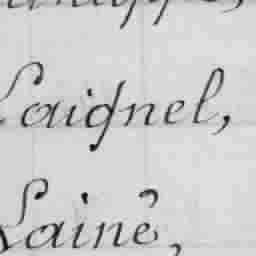 Laignel,
Lainé,